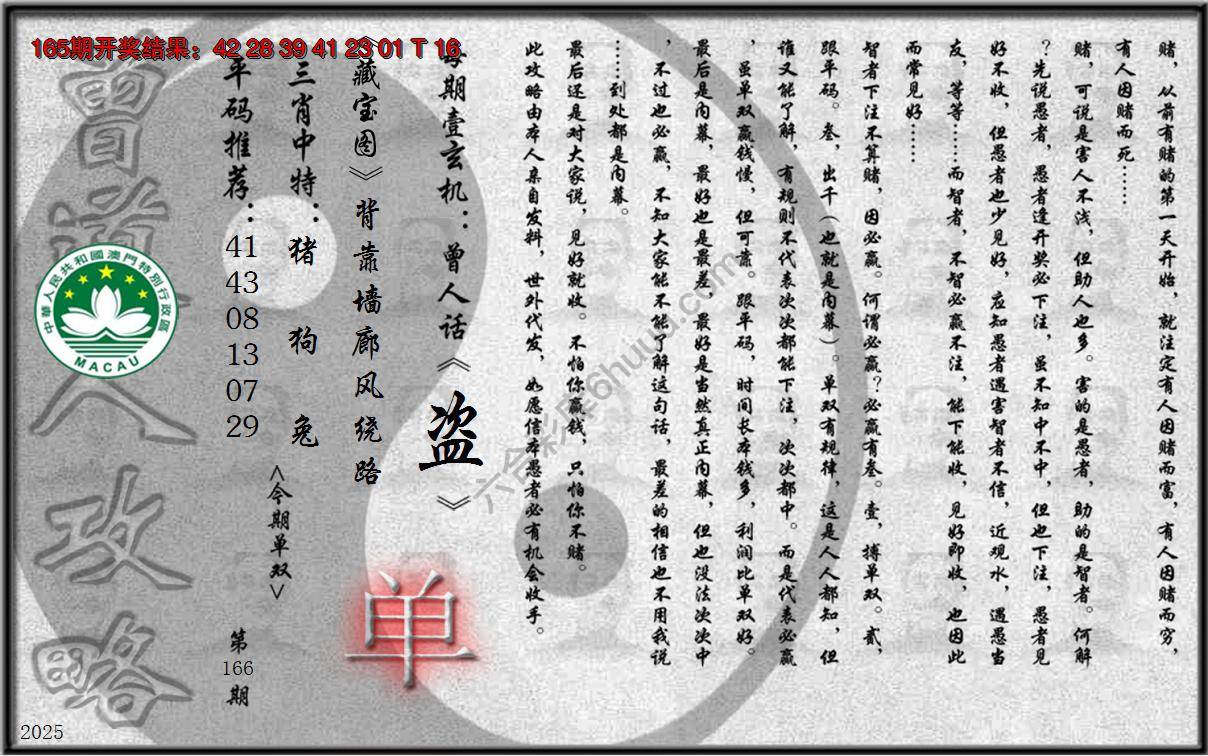 165期开奖结果：42 28 39 41 23 01 T 16
赌，从前有赌的第一天开始，就注定有人因赌而富，有人因赌而穷，
有人因赌而死……
赌，可说是害人不浅，但助人也多。害的是愚者，助的是智者。何解
？先说愚者，愚者逢开奖必下注，虽不知中不中，但也下注，愚者见
好不收，但愚者也少见好，应知愚者遇害智者不信，近观水，遇愚当
友，等等……而智者，不智必赢不注，能下能收，见好即收，也因此
而常见好……
智者下注不算赌，因必赢。何谓必赢？必赢有叁。壹，搏单双。贰，
跟平码。叁，出千（也就是内幕）。单双有规律，这是人人都知，但
谁又能了解，有规则不代表次次都能下注，次次都中。而是代表必赢
，虽单双赢钱慢，但可靠。跟平码，时间长本钱多，利润比单双好。
最后是内幕，最好也是最差，最好是当然真正内幕，但也没法次次中
，不过也必赢，不知大家能不能了解这句话，最差的相信也不用我说
……到处都是内幕。
最后还是对大家说，见好就收。不怕你赢钱，只怕你不赌。
此攻略由本人亲自发料，世外代发，如愿信本愚者必有机会收手。
每期壹玄机：曾人话《盗》
《藏宝图》背靠墙廊风绕路
三肖中特：猪 狗 兔
<今期单双>
单
平码推荐：
41
43
08
13
07
29
第
166
期
曾道人攻略
中華人民共和國澳門特別行政區
MACAU
六合彩库6huuu.com
2025